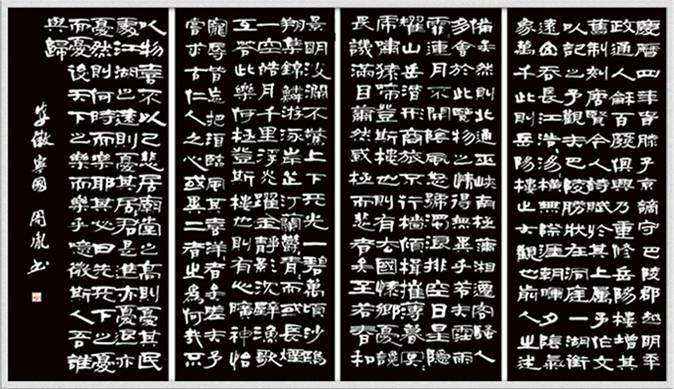 慶曆四年春滕子京謫守巴陵郡越明年
政通人和百廢俱興乃重修岳陽樓增其
舊制刻唐賢今人詩賦於其上屬予作文
以記之予觀夫巴陵勝狀在洞庭一湖銜
遠山吞長江浩浩湯湯橫無際涯朝暉夕陰氣
象萬千此則岳陽樓之大觀也前人之述
備矣然則北通巫峽南極瀟湘遷客騷人
多會於此覽物之情得無異乎若夫淫雨
霏霏連月不開陰風怒號濁浪排空日星隱
耀山岳潛形商旅不行檣傾楫摧薄暮冥冥
虎嘯猿啼登斯樓也則有去國懷鄉憂讒
畏譏滿目蕭然感極而悲者矣至若春和
景明波瀾不驚上下天光一碧萬頃沙鷗
翔集錦鱗游泳岸芷汀蘭鬱鬱青青而或長煙
一空皓月千里浮光躍金靜影沉璧漁歌
互答此樂何極登斯樓也則有心曠神怡
寵辱皆忘把酒臨風其喜洋洋者矣嗟夫予
嘗求古仁人之心或異二者之為何哉不
以物喜不以己悲居廟堂之高則憂其民
處江湖之遠則憂其君是進亦憂退亦
憂然則何時而樂耶其必曰先天下之憂
而憂後天下之樂而樂乎噫微斯人吾誰
與歸
安徽寧國 周胤書